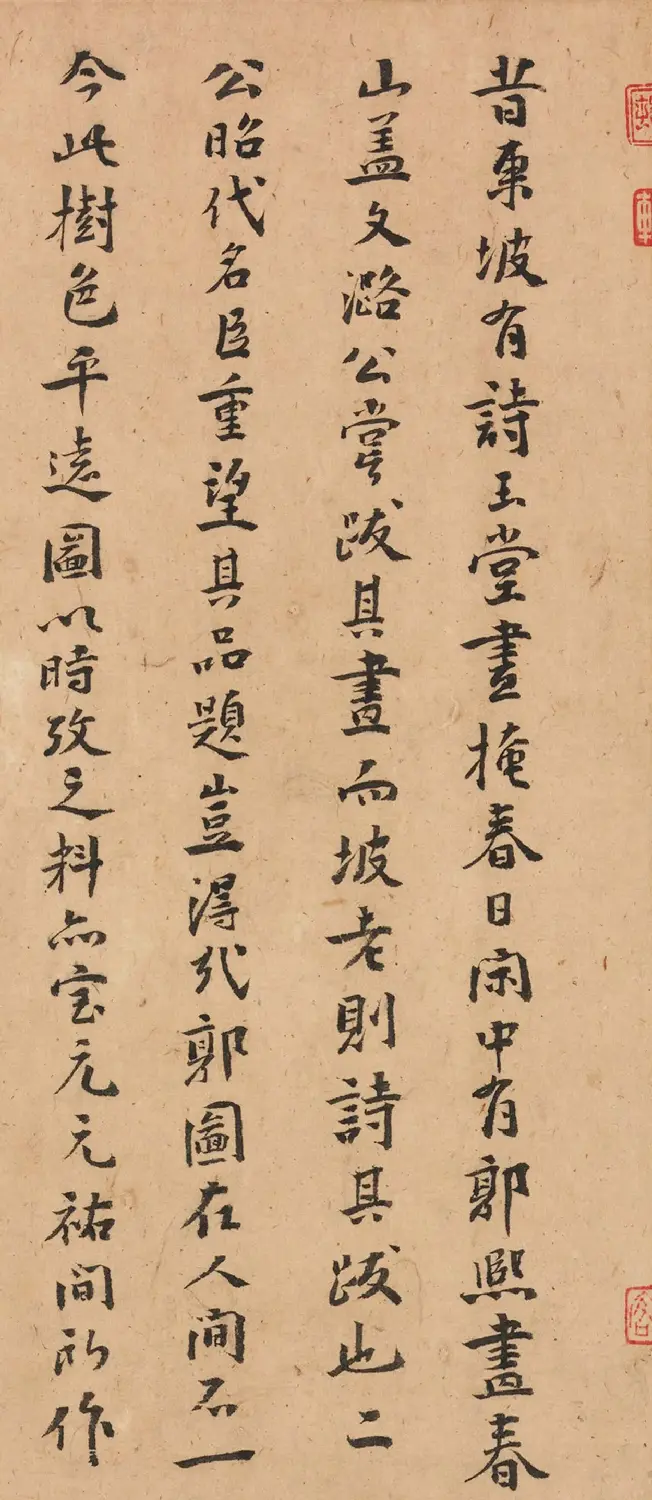 昔東坡有詩玉堂晝掩春日閑中有郭熙畫春
山盖文潞公嘗跋其畫而坡老則詩其跋也二
公昭代名臣重望其品題豈淂代郭圖在人間不一
今此樹色平遠圖以時攷之料亦宝元元祐間所作